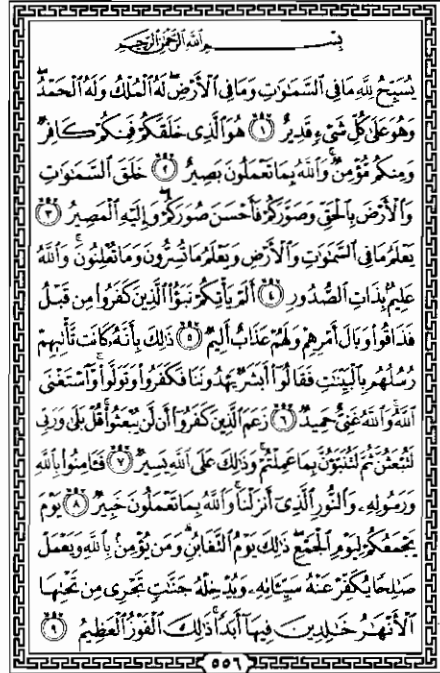 بِسْمِ اللَّهِ الرَّحْمَٰنِ الرَّحِيمِ
يُسَبِّحُ لِلَّهِ مَا فِي السَّمَٰوَٰتِ وَمَا فِي الْأَرْضِ ۖ لَهُ الْمُلْكُ وَلَهُ الْحَمْدُ ۖ
وَهُوَ عَلَىٰ كُلِّ شَيْءٍ قَدِيرٌ ١ هُوَ الَّذِي خَلَقَكُمْ فَمِنكُمْ كَافِرٌ
وَمِنكُم مُّؤْمِنٌ ۚ وَاللَّهُ بِمَا تَعْمَلُونَ بَصِيرٌ ٢ خَلَقَ السَّمَٰوَٰتِ
وَالْأَرْضَ بِالْحَقِّ وَصَوَّرَكُمْ فَأَحْسَنَ صُوَرَكُمْ ۖ وَإِلَيْهِ الْمَصِيرُ ٣
يَعْلَمُ مَا فِي السَّمَٰوَٰتِ وَالْأَرْضِ وَيَعْلَمُ مَا تُسِرُّونَ وَمَا تُعْلِنُونَ ۚ وَاللَّهُ
عَلِيمٌ بِذَاتِ الصُّدُورِ ٤ أَلَمْ يَأْتِكُمْ نَبَؤُا الَّذِينَ كَفَرُوا مِن قَبْلُ
فَذَاقُوا وَبَالَ أَمْرِهِمْ وَلَهُمْ عَذَابٌ أَلِيمٌ ٥ ذَٰلِكَ بِأَنَّهُ كَانَت تَّأْتِيهِمْ
رُسُلُهُم بِالْبَيِّنَٰتِ فَقَالُوا أَبَشَرٌ يَهْدُونَنَا فَكَفَرُوا وَتَوَلَّوا ۚ وَّاسْتَغْنَى
اللَّهُ ۚ وَاللَّهُ غَنِيٌّ حَمِيدٌ ٦ زَعَمَ الَّذِينَ كَفَرُوا أَن لَّن يُبْعَثُوا ۚ قُلْ بَلَىٰ وَرَبِّي
لَتُبْعَثُنَّ ثُمَّ لَتُنَبَّؤُنَّ بِمَا عَمِلْتُمْ ۚ وَذَٰلِكَ عَلَى اللَّهِ يَسِيرٌ ٧ فَـَٔامِنُوا بِاللَّهِ
وَرَسُولِهِ وَالنُّورِ الَّذِي أَنزَلْنَا ۚ وَاللَّهُ بِمَا تَعْمَلُونَ خَبِيرٌ ٨ يَوْمَ
يَجْمَعُكُمْ لِيَوْمِ الْجَمْعِ ۖ ذَٰلِكَ يَوْمُ التَّغَابُنِ ۗ وَمَن يُؤْمِن بِاللَّهِ وَيَعْمَلْ
صَٰلِحًا يُكَفِّرْ عَنْهُ سَيِّـَٔاتِهِ وَيُدْخِلْهُ جَنَّٰتٍ تَجْرِي مِن تَحْتِهَا
الْأَنْهَٰرُ خَٰلِدِينَ فِيهَا أَبَدًا ۚ ذَٰلِكَ الْفَوْزُ الْعَظِيمُ ٩
٥٥٦